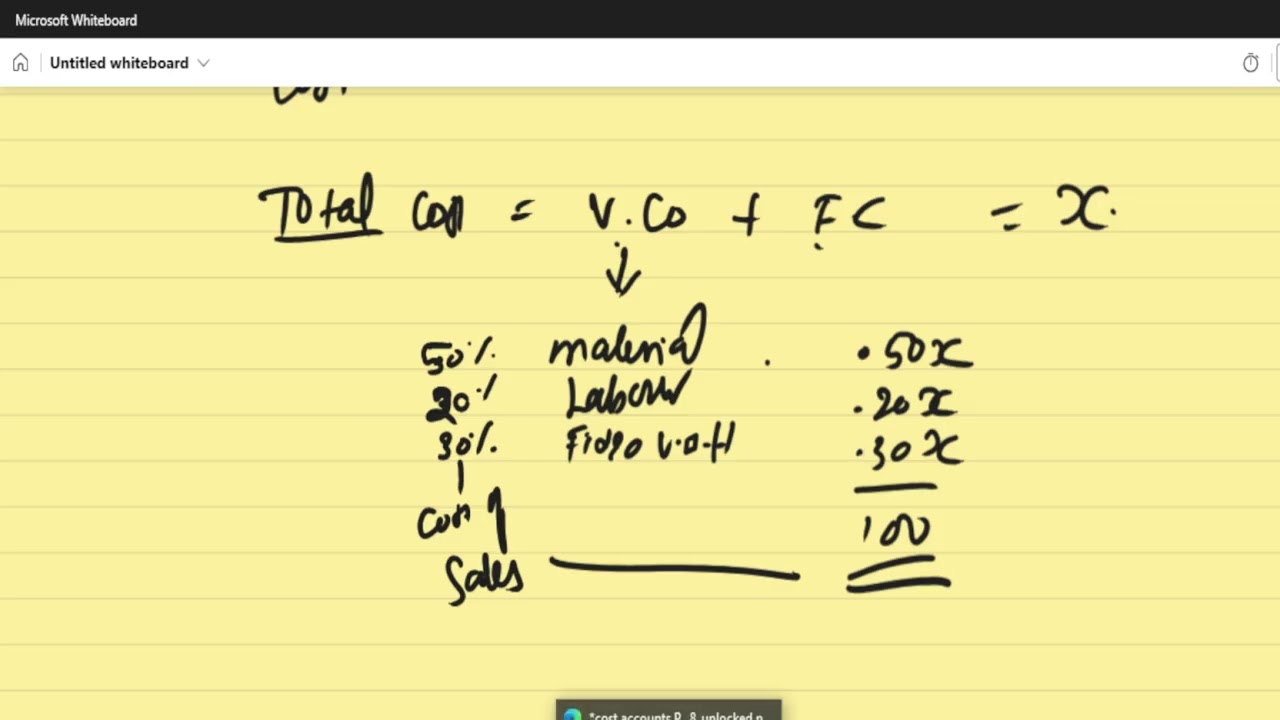 Microsoft Whiteboard
Untitled whiteboard
Total Cost = V.Co + FC = x.
50% material .50x
20% Labour .20x
30% .30x
Cost of 100
Sales
*cost accounts P_8_unlocked.p